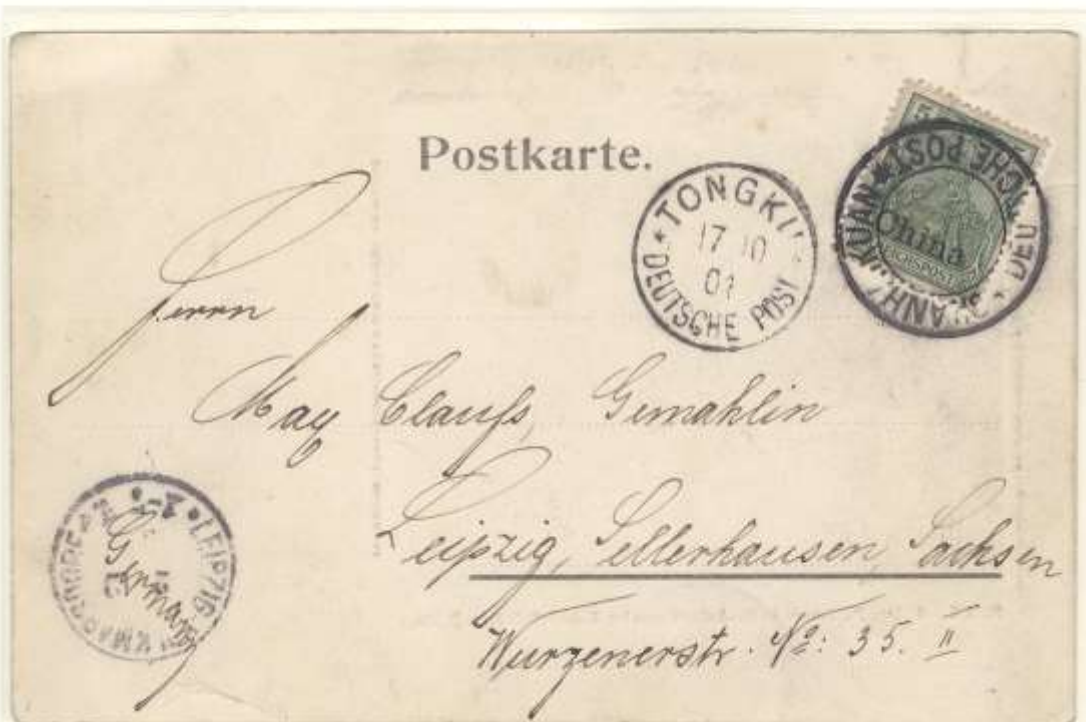 Postkarte.
TONGKU
17 10
01
DEUTSCHE POST
SHANHAIKUAN
DEUTSCHE POST
5
China
REICHSPOST
Herrn
Max Clauss, Gemahlin
Leipzig, Sellerhausen, Sachsen
Wurzenerstr. No: 35. II
LEIPZIG
Germany